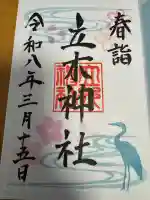 春詣
立木神社
令和八年三月十五日